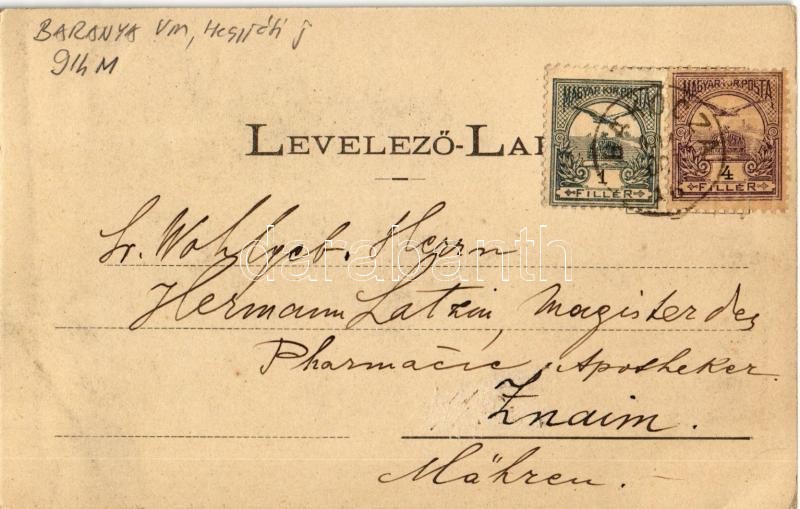 BARANYA Vm, Hegyháti j
914 M
LEVELEZŐ-LAP
MAGYAR KIR. POSTA
1
FILLÉR
MAGYAR KIR. POSTA
4
FILLÉR
Sr. Wohlgeb. Herrn
Hermann Latzin, Magister der
Pharmacie, Apotheker
Znaim.
Mähren.
darabanth